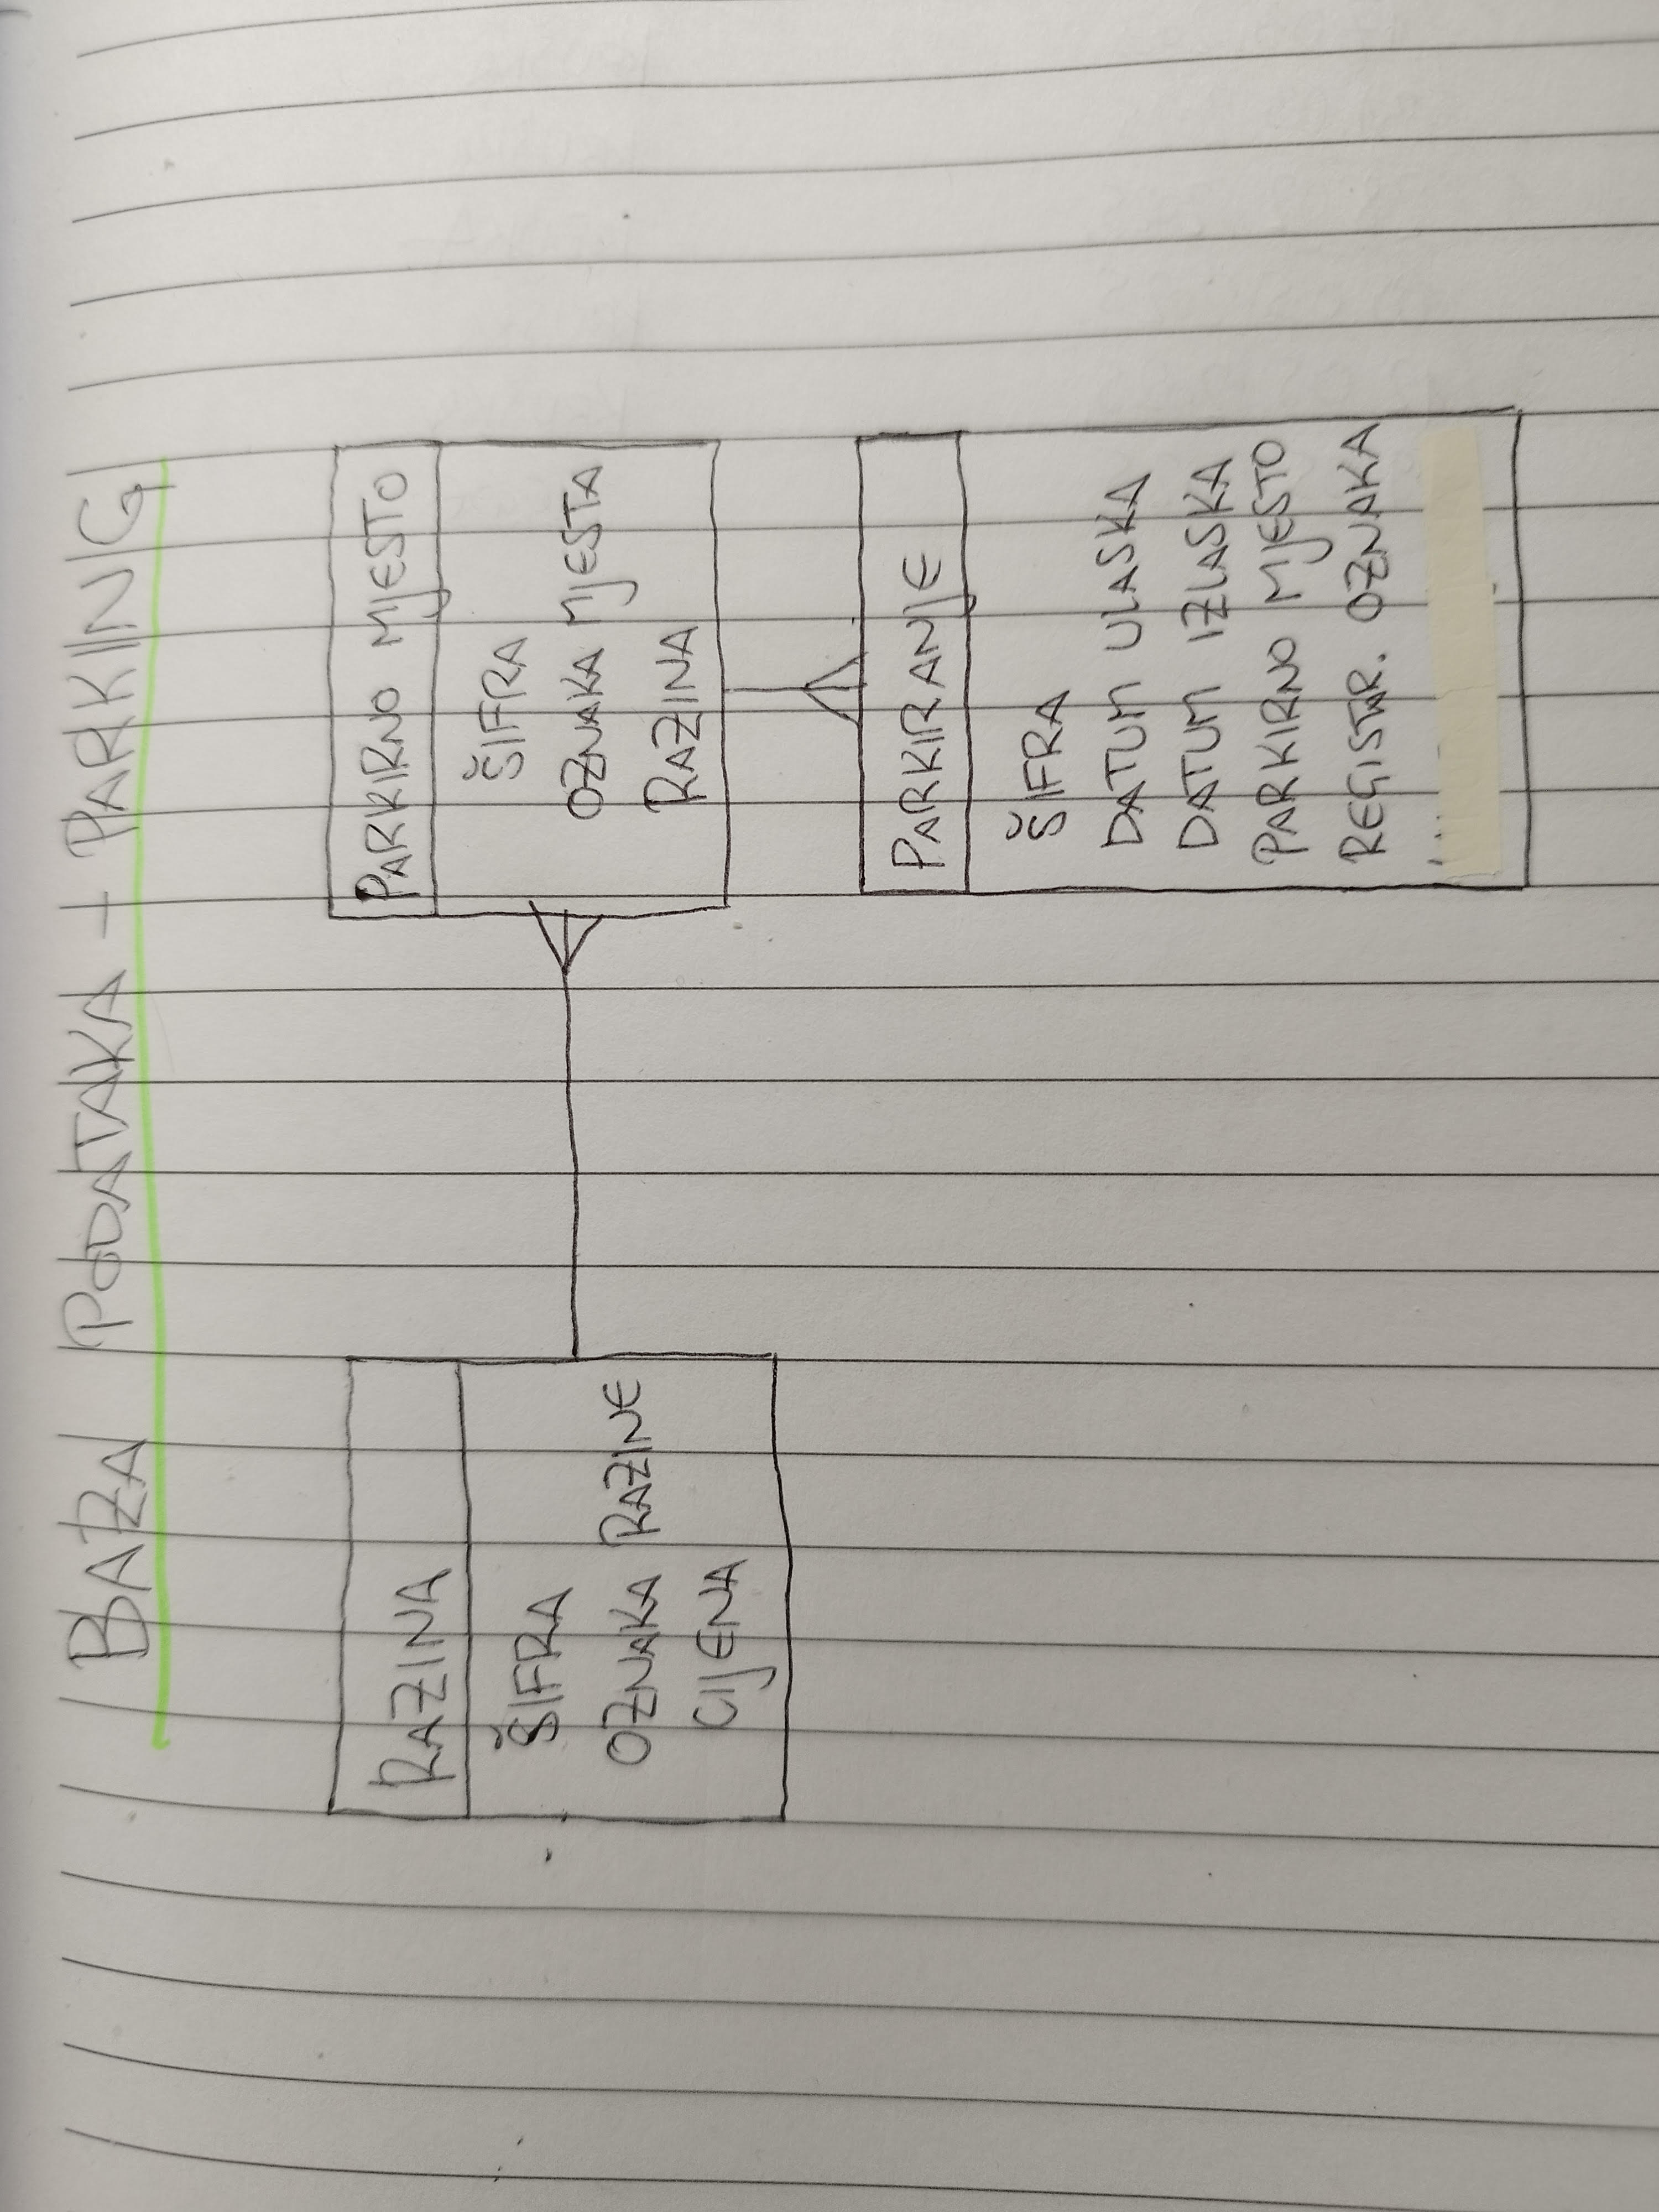 BAZA PODATAKA - PARKING
RAZINA
ŠIFRA
OZNAKA RAZINE
CIJENA
PARKIRNO MJESTO
ŠIFRA
OZNAKA MJESTA
RAZINA
PARKIRANJE
ŠIFRA
DATUM ULASKA
DATUM IZLASKA
PARKIRNO MJESTO
REGISTAR. OZNAKA